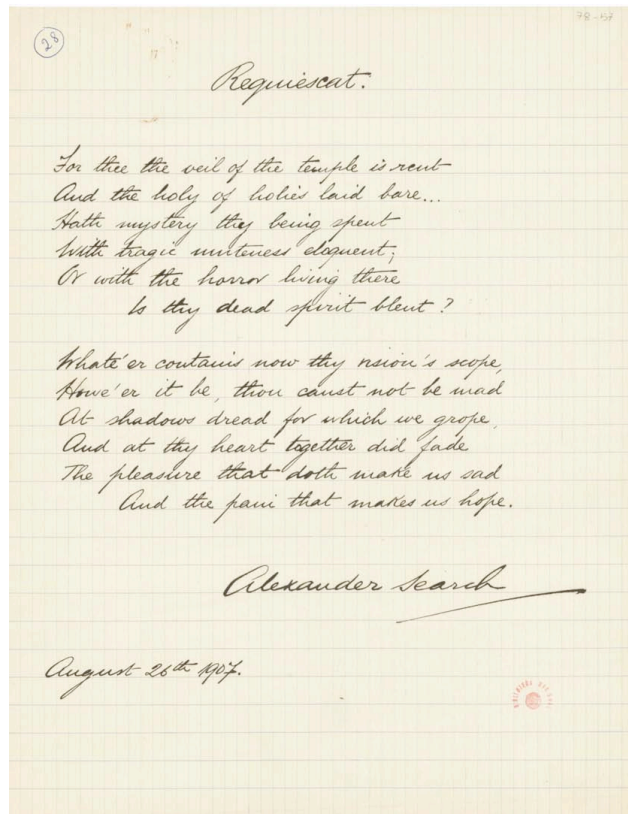 28
78-57
Requiescat.
For thee the veil of the temple is rent
And the holy of holies laid bare...
Hath mystery thy being spent
With tragic muteness eloquent;
Or with the horror living there
Is thy dead spirit blent?
Whate'er contains now thy vision's scope,
Howe'er it be, thou canst not be mad
At shadows dread for which we grope,
And at thy heart together did fade
The pleasure that doth make us sad
And the pain that makes us hope.
Alexander Search
August 26th 1907.